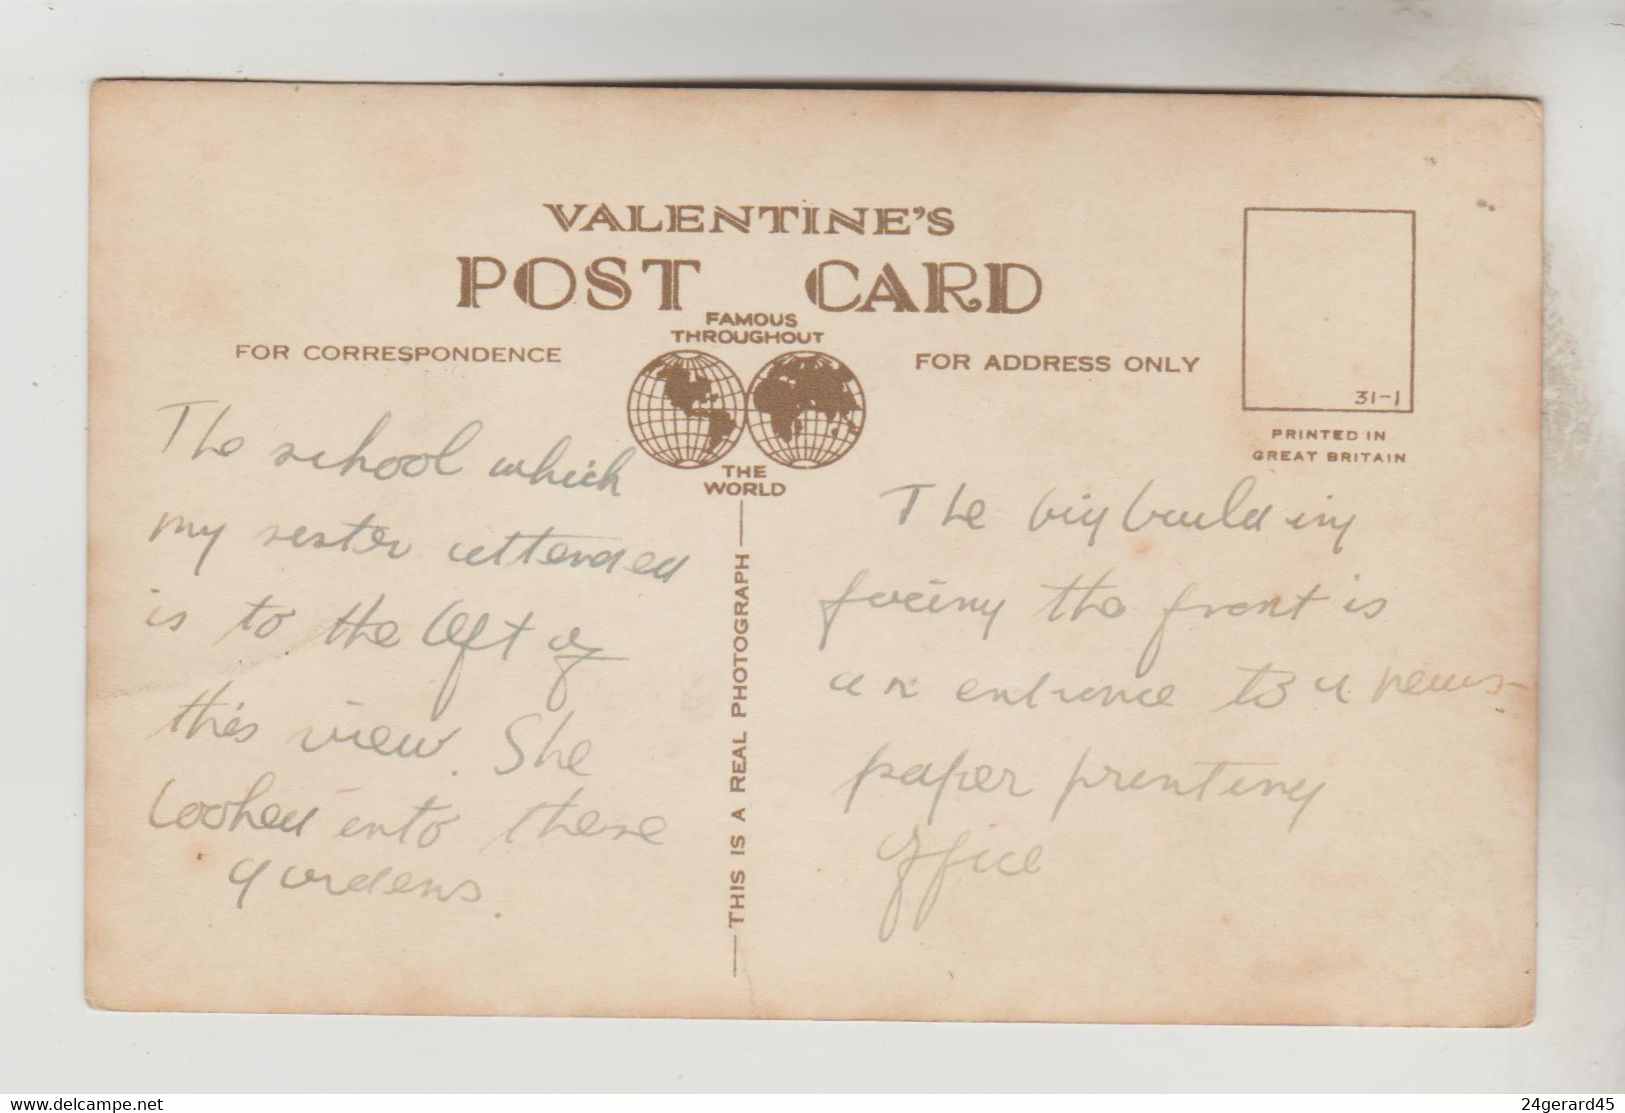 VALENTINE'S
POST CARD
FAMOUS
THROUGHOUT
THE
WORLD
FOR CORRESPONDENCE
FOR ADDRESS ONLY
31-1
PRINTED IN
GREAT BRITAIN
THIS IS A REAL PHOTOGRAPH
The school which
my sister attended
is to the left of
this view. She
looked into these
gardens.
The big building
facing the front is
an entrance to a news-
paper printing
office
www.delcampe.net
24gerard45